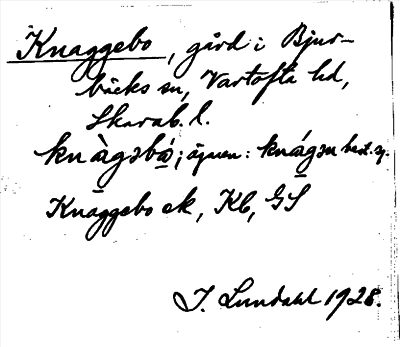 Knaggebo, gård i Bjur-
bäcks sn, Vartofta hd,
Skarab. l.
knàgəbó; ägaren: knágən best. sg.
Knaggebo ek, Kb, GS
I. Lundahl 1928.